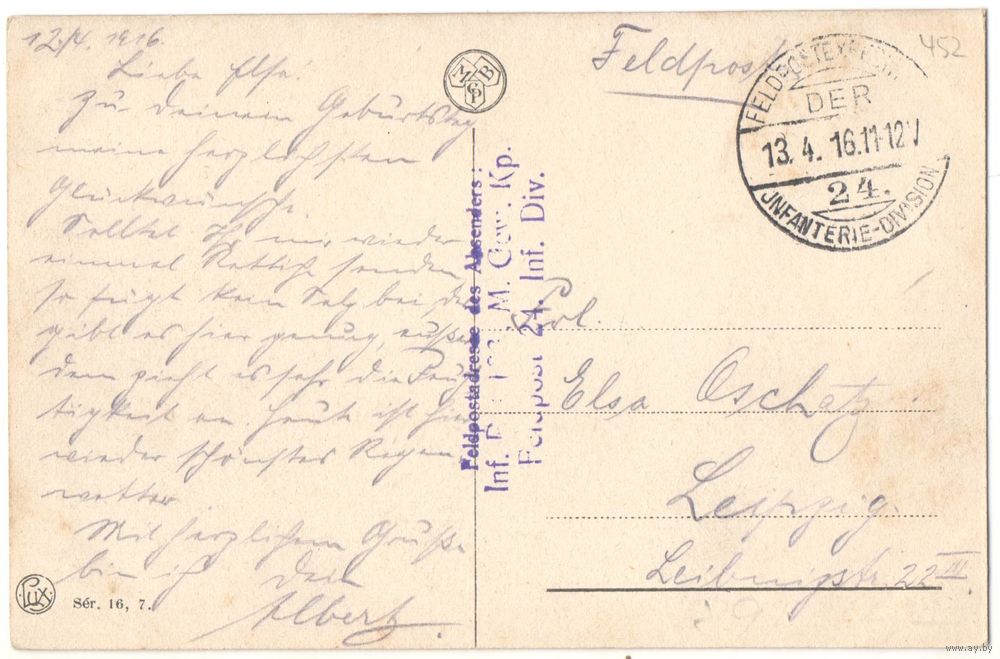 12./4. 1916.
Liebe Else!
Zu deinem Geburtstag
meine herzlichsten
Glückwünsche.
Solltet Ihr mir wieder
einmal Rettiche senden
so fügt kein Salz bei, das
gibt es hier genug, außer
dem zieht es sehr die Feuch
tigkeit an. Heute ist hier
wieder schönstes Regen
wetter
Mit herzlichem Gruße
bin ich Dein
Albert.
Lux
Sér. 16, 7.
M B
Feldpostadresse des Absenders:
Inf. M. Gew. Kp.
Feldpost 24. Inf. Div.
Feldpost
452
FELDPOSTEXPED.
DER
13. 4. 16. 11-12 V
24.
INFANTERIE-DIVISION
Frl.
Elsa Oschatz
Leipzig.
Leibnizstr. 22 III
www.ay.by